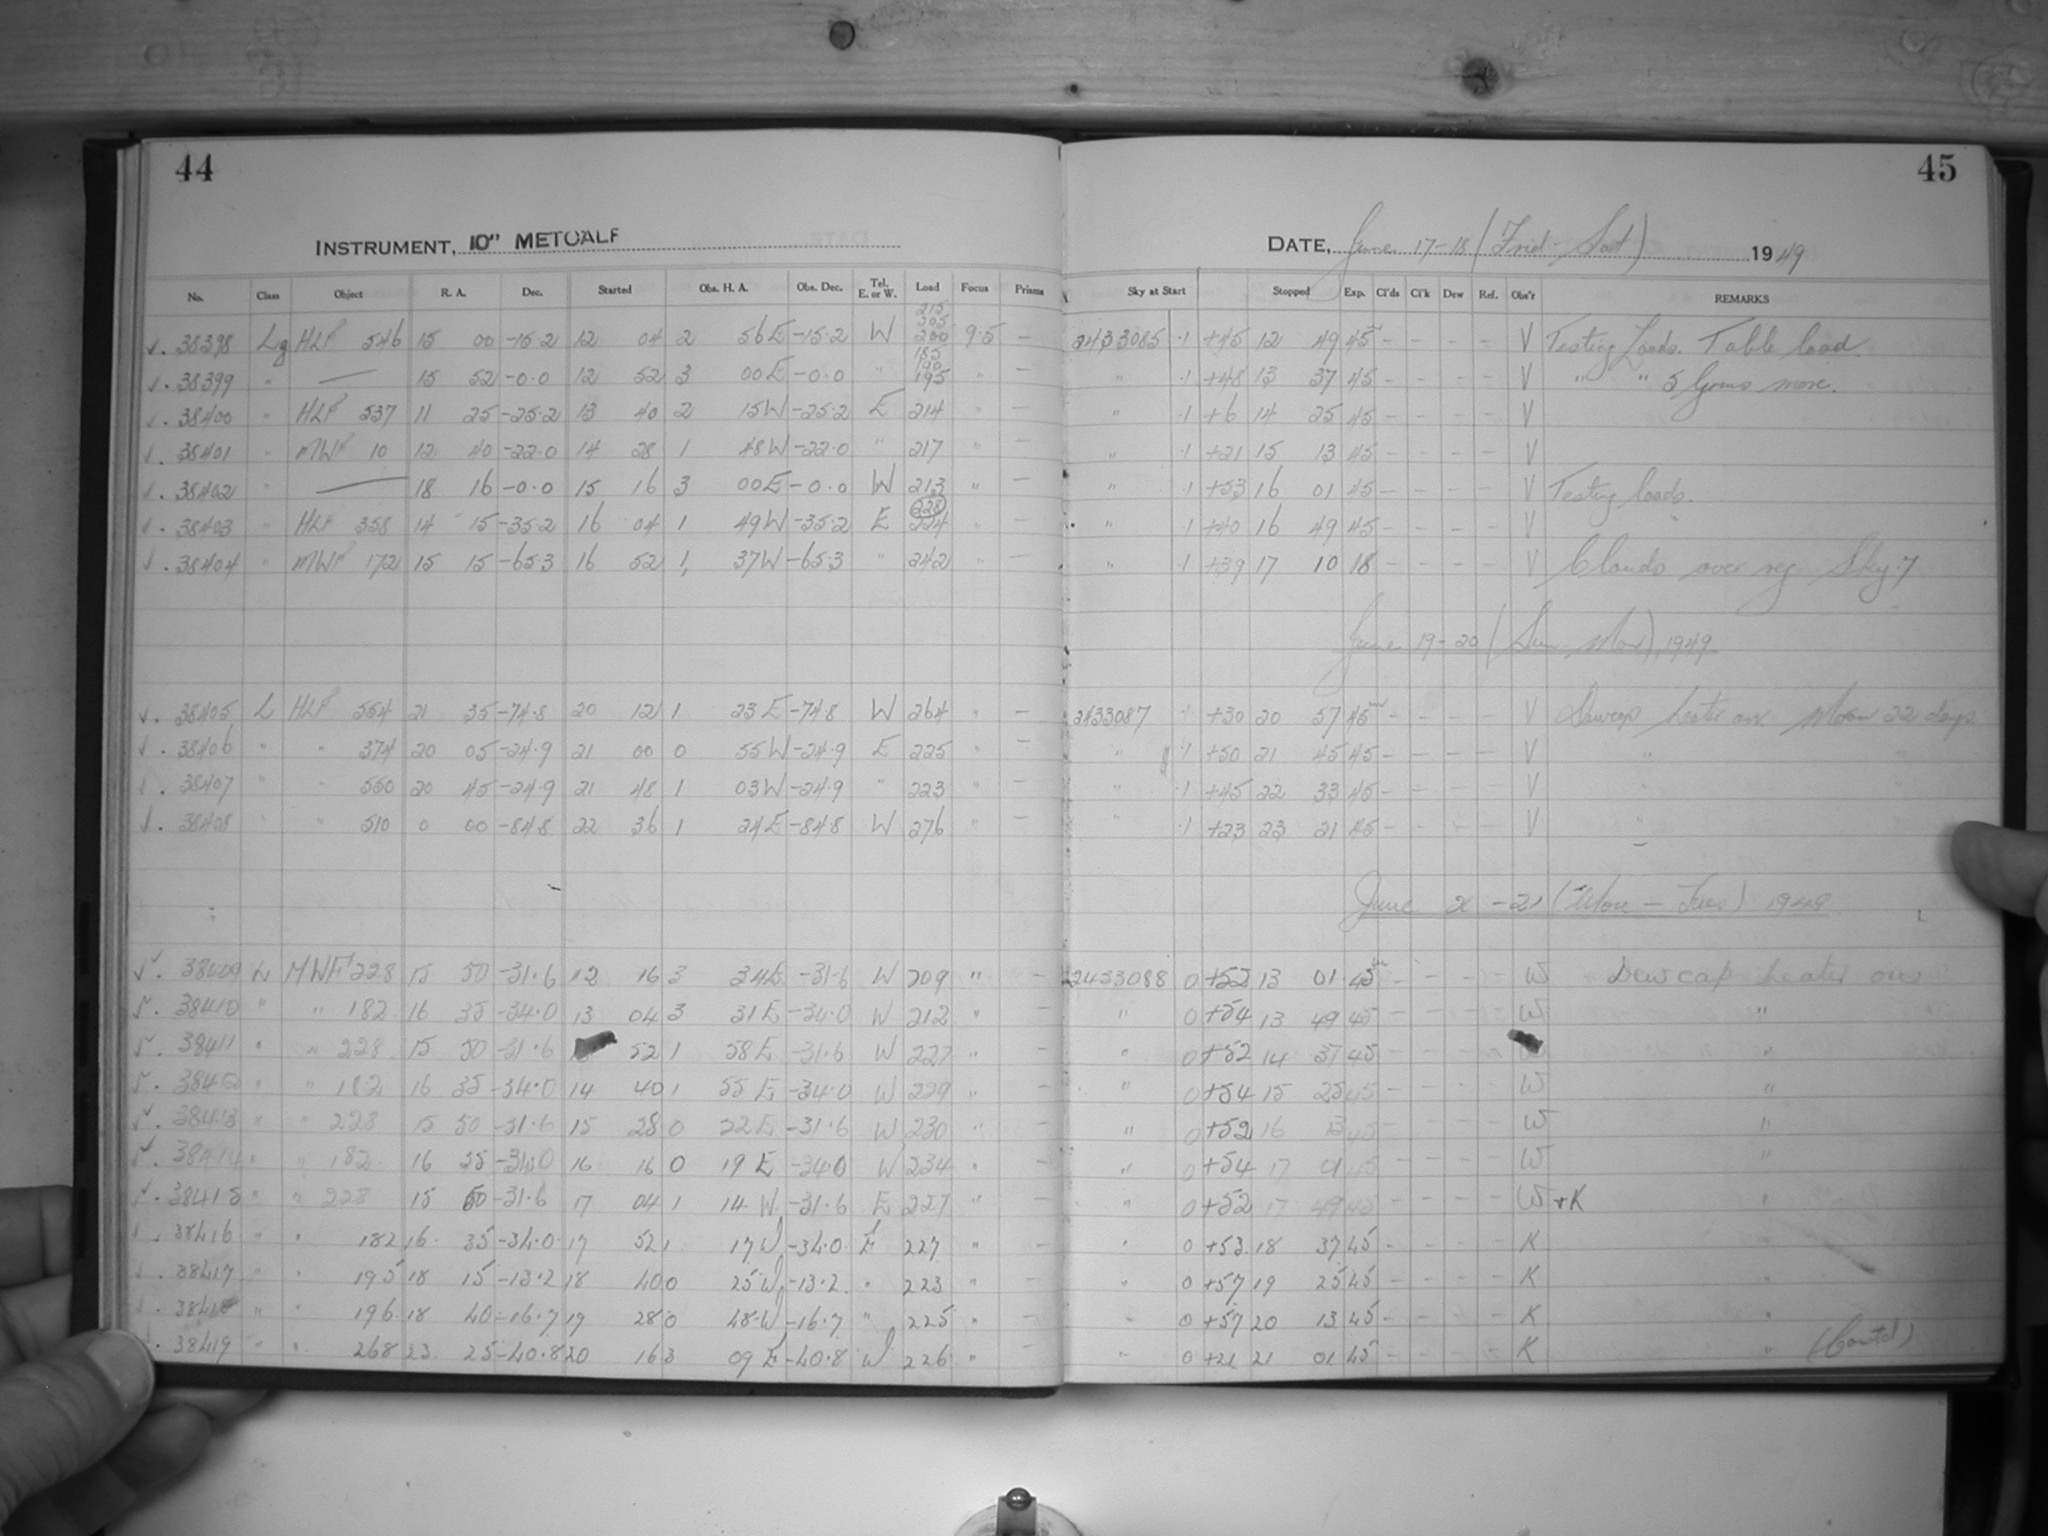 44
INSTRUMENT, 10" METCALF
No. Class Object R. A. Dec. Started Obs. H. A. Obs. Dec. Tel. E. or W. Load Focus Prisms
215
205
√. 38398 Lg HLF 546 15 00 -15.2 12 04 2 56 E -15.2 W 200 9.5 —
185
190
√. 38399 " — 15 52 -0.0 12 52 3 00 E -0.0 " 195 " —
√. 38400 " HLF 537 11 25 -25.2 13 40 2 15 W -25.2 E 214 " —
√. 38401 " MWF 10 12 40 -22.0 14 28 1 48 W -22.0 " 217 " —
√. 38402 " — 18 16 -0.0 15 16 3 00 E -0.0 W 213 " —
228
√. 38403 " HLF 358 14 15 -35.2 16 04 1 49 W -35.2 E 224 " —
√. 38404 " MWF 172 15 15 -65.3 16 52 1 37 W -65.3 " 242 " —
√. 38405 L HLF 554 21 35 -74.8 20 12 1 23 E -74.8 W 264 " —
√. 38406 " " 374 20 05 -24.9 21 00 0 55 W -24.9 E 225 " —
√. 38407 " " 550 20 45 -24.9 21 48 1 03 W -24.9 " 223 " —
√. 38408 " " 510 0 00 -84.8 22 36 1 24 E -84.8 W 276 " —
√. 38409 L MWF 228 15 50 -31.6 12 16 3 34 E -31.6 W 209 " —
√. 38410 " " 182 16 35 -34.0 13 04 3 31 E -34.0 W 212 " —
√. 38411 " " 228 15 50 -31.6 52 1 58 E -31.6 W 227 " —
√. " " 182 16 35 -34.0 14 40 1 55 E -34.0 W 229 " —
√. 38413 " " 228 15 50 -31.6 15 28 0 22 E -31.6 W 230 " —
√. 38414 " " 182 16 35 -34.0 16 16 0 19 E -34.0 W 234 " —
√. 38415 " " 228 15 50 -31.6 17 04 1 14 W -31.6 E 227 " —
√. 38416 " " 182 16 35 -34.0 17 52 1 17 W -34.0 E 227 " —
√. 38417 " " 195 18 15 -13.2 18 40 0 25 W -13.2 " 223 " —
√. 38418 " " 196 18 40 -16.7 19 28 0 48 W -16.7 " 225 " —
√. 38419 " " 268 23 25 -40.8 20 16 3 09 E -40.8 W 226 " —
45
DATE, June 17-18 (Frid - Sat) 1949
Sky at Start Stopped Exp. Cl'ds Cl'k Dew Ref. Obs'r REMARKS
2433085 .1 +45 12 49 45 m - - - - V Testing Loads. Table load.
" .1 +48 13 37 45 - - - - V " " 5 lgms more.
" .1 +6 14 25 45 - - - - V
" .1 +21 15 13 45 - - - - V
" .1 +53 16 01 45 - - - - V Testing loads.
" .1 +40 16 49 45 - - - - V
" .1 +39 17 10 18 - - - - V Clouds over reg Sky .7
June 19-20 (Sun - Mon), 1949
2433087 .1 +30 20 57 45 m - - - - V Dewcap heater on. Moon 22 days
" .1 +50 21 45 45 - - - - V " "
" .1 +45 22 33 45 - - - - V "
" .1 +23 23 21 45 - - - - V "
June -21 (Mon - Tues) 1949
2433088 0 +52 13 01 45 m - - - - W Dew cap heater on
" 0 +54 13 49 45 - - - - W "
" 0 +52 14 37 45 - - - - W "
" 0 +54 15 25 45 - - - - W "
" 0 +52 16 13 45 - - - - W "
" 0 +54 17 01 45 - - - - W "
" 0 +52 17 49 45 - - - - W + K "
" 0 +53 18 37 45 - - - - K "
" 0 +57 19 25 45 - - - - K "
" 0 +57 20 13 45 - - - - K "
" 0 +21 21 01 45 - - - - K " (Contd)